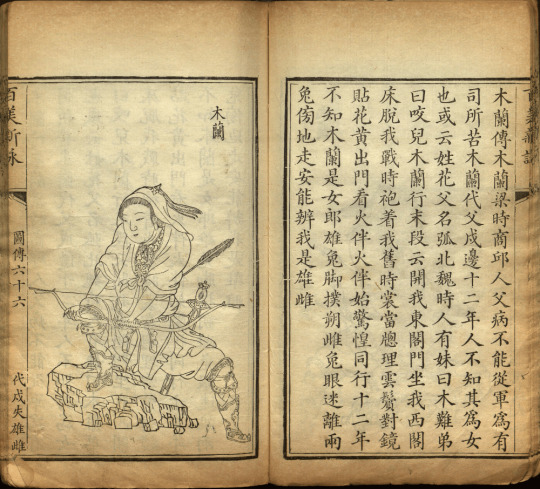 木蘭傳木蘭梁時商邱人父病不能從軍爲有
司所苦木蘭代父戍邊十二年人不知其爲女
也或云姓花父名弧北魏時人有妹曰木難弟
曰咬兒木蘭行末段云開我東閣門坐我西閣
床脫我戰時袍着我舊時裳當牕理雲鬢對鏡
貼花黃出門看火伴火伴始驚惶同行十二年
不知木蘭是女郎雄兔脚撲朔雌兔眼迷離兩
兔傍地走安能辨我是雄雌
木蘭
百美新詠
圖傳六十六
代戍失雄雌